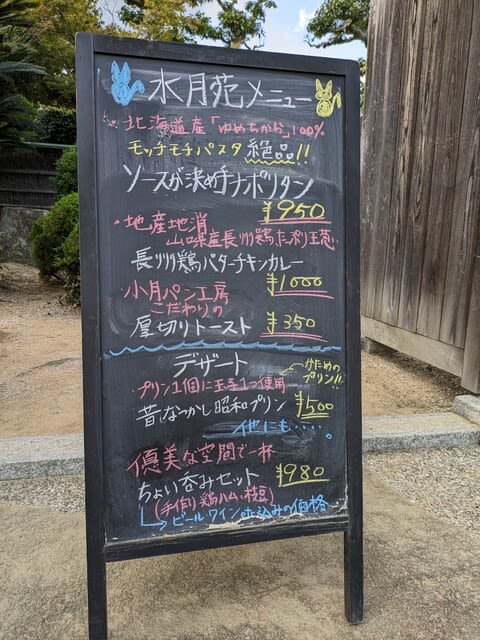 水月苑メニュー
・北海道産「ゆめちから」100%
モッチモチパスタ 絶品!!
ソースが決め手ナポリタン
¥950
・地産地消
山口県産長州鶏たっぷり玉葱
長州鶏バターチキンカレー
¥1000
小月パン工房
こだわりの
厚切りトースト ¥350
デザート
かための
プリン!!
・プリン1個に玉子1つ使用
昔なつかし昭和プリン ¥500
他にも・・・・。
優美な空間で一杯
ちょい呑みセット ¥980
(手作り鶏ハム、枝豆)
ビール・ワイン込みの価格